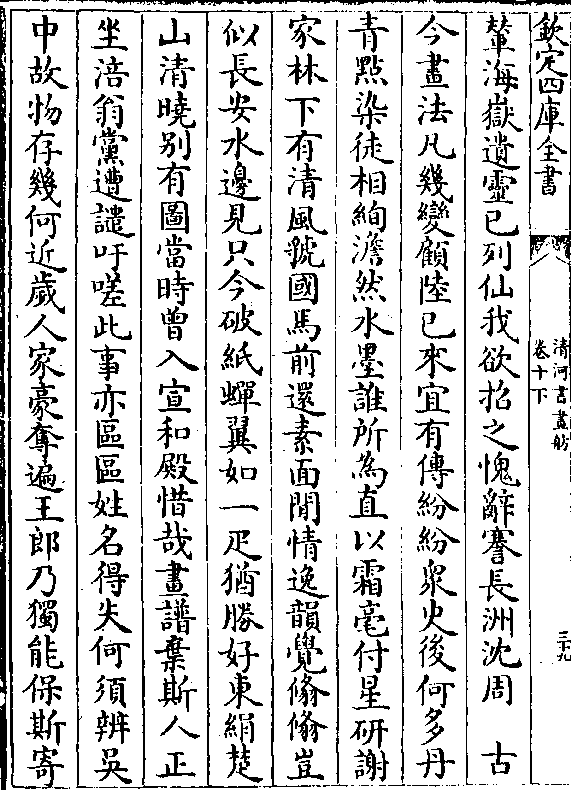 欽定四庫全書
清河書畫舫
卷十下
三十九
輦海嶽遺靈已列仙我欲招之愧辭謇長洲沈周　古
今畫法凡幾變顧陸已來宜有傳紛紛衆史後何多丹
青點染徒相絢澹然水墨誰所為直以霜毫付星研謝
家林下有清風虢國馬前還素面閒情逸韻覺翛翛豈
似長安水邊見只今破紙蟬翼如一疋猶勝好東絹楚
山清曉别有圖當時曾入宣和殿惜哉畫譜棄斯人正
坐涪翁黨遭譴吁嗟此事亦區區姓名得失何須辨吳
中故物存幾何近歲人家豪奪遍王郎乃獨能保斯寄